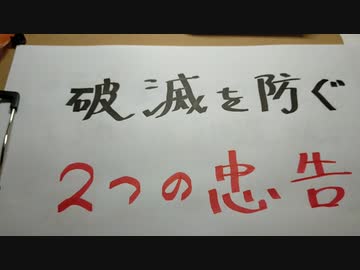 破滅を防ぐ
2つの忠告